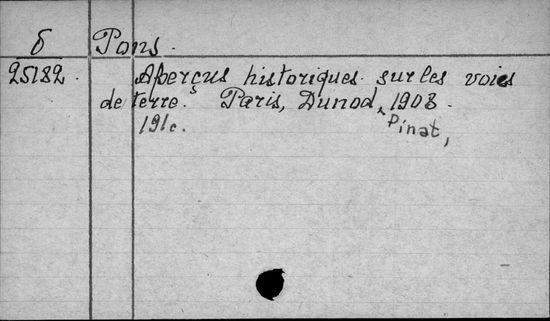 б Pons.
25182. Aperçus historiques sur les voies
de terre. Paris, Dunod, 1908.
191c. Pinat,